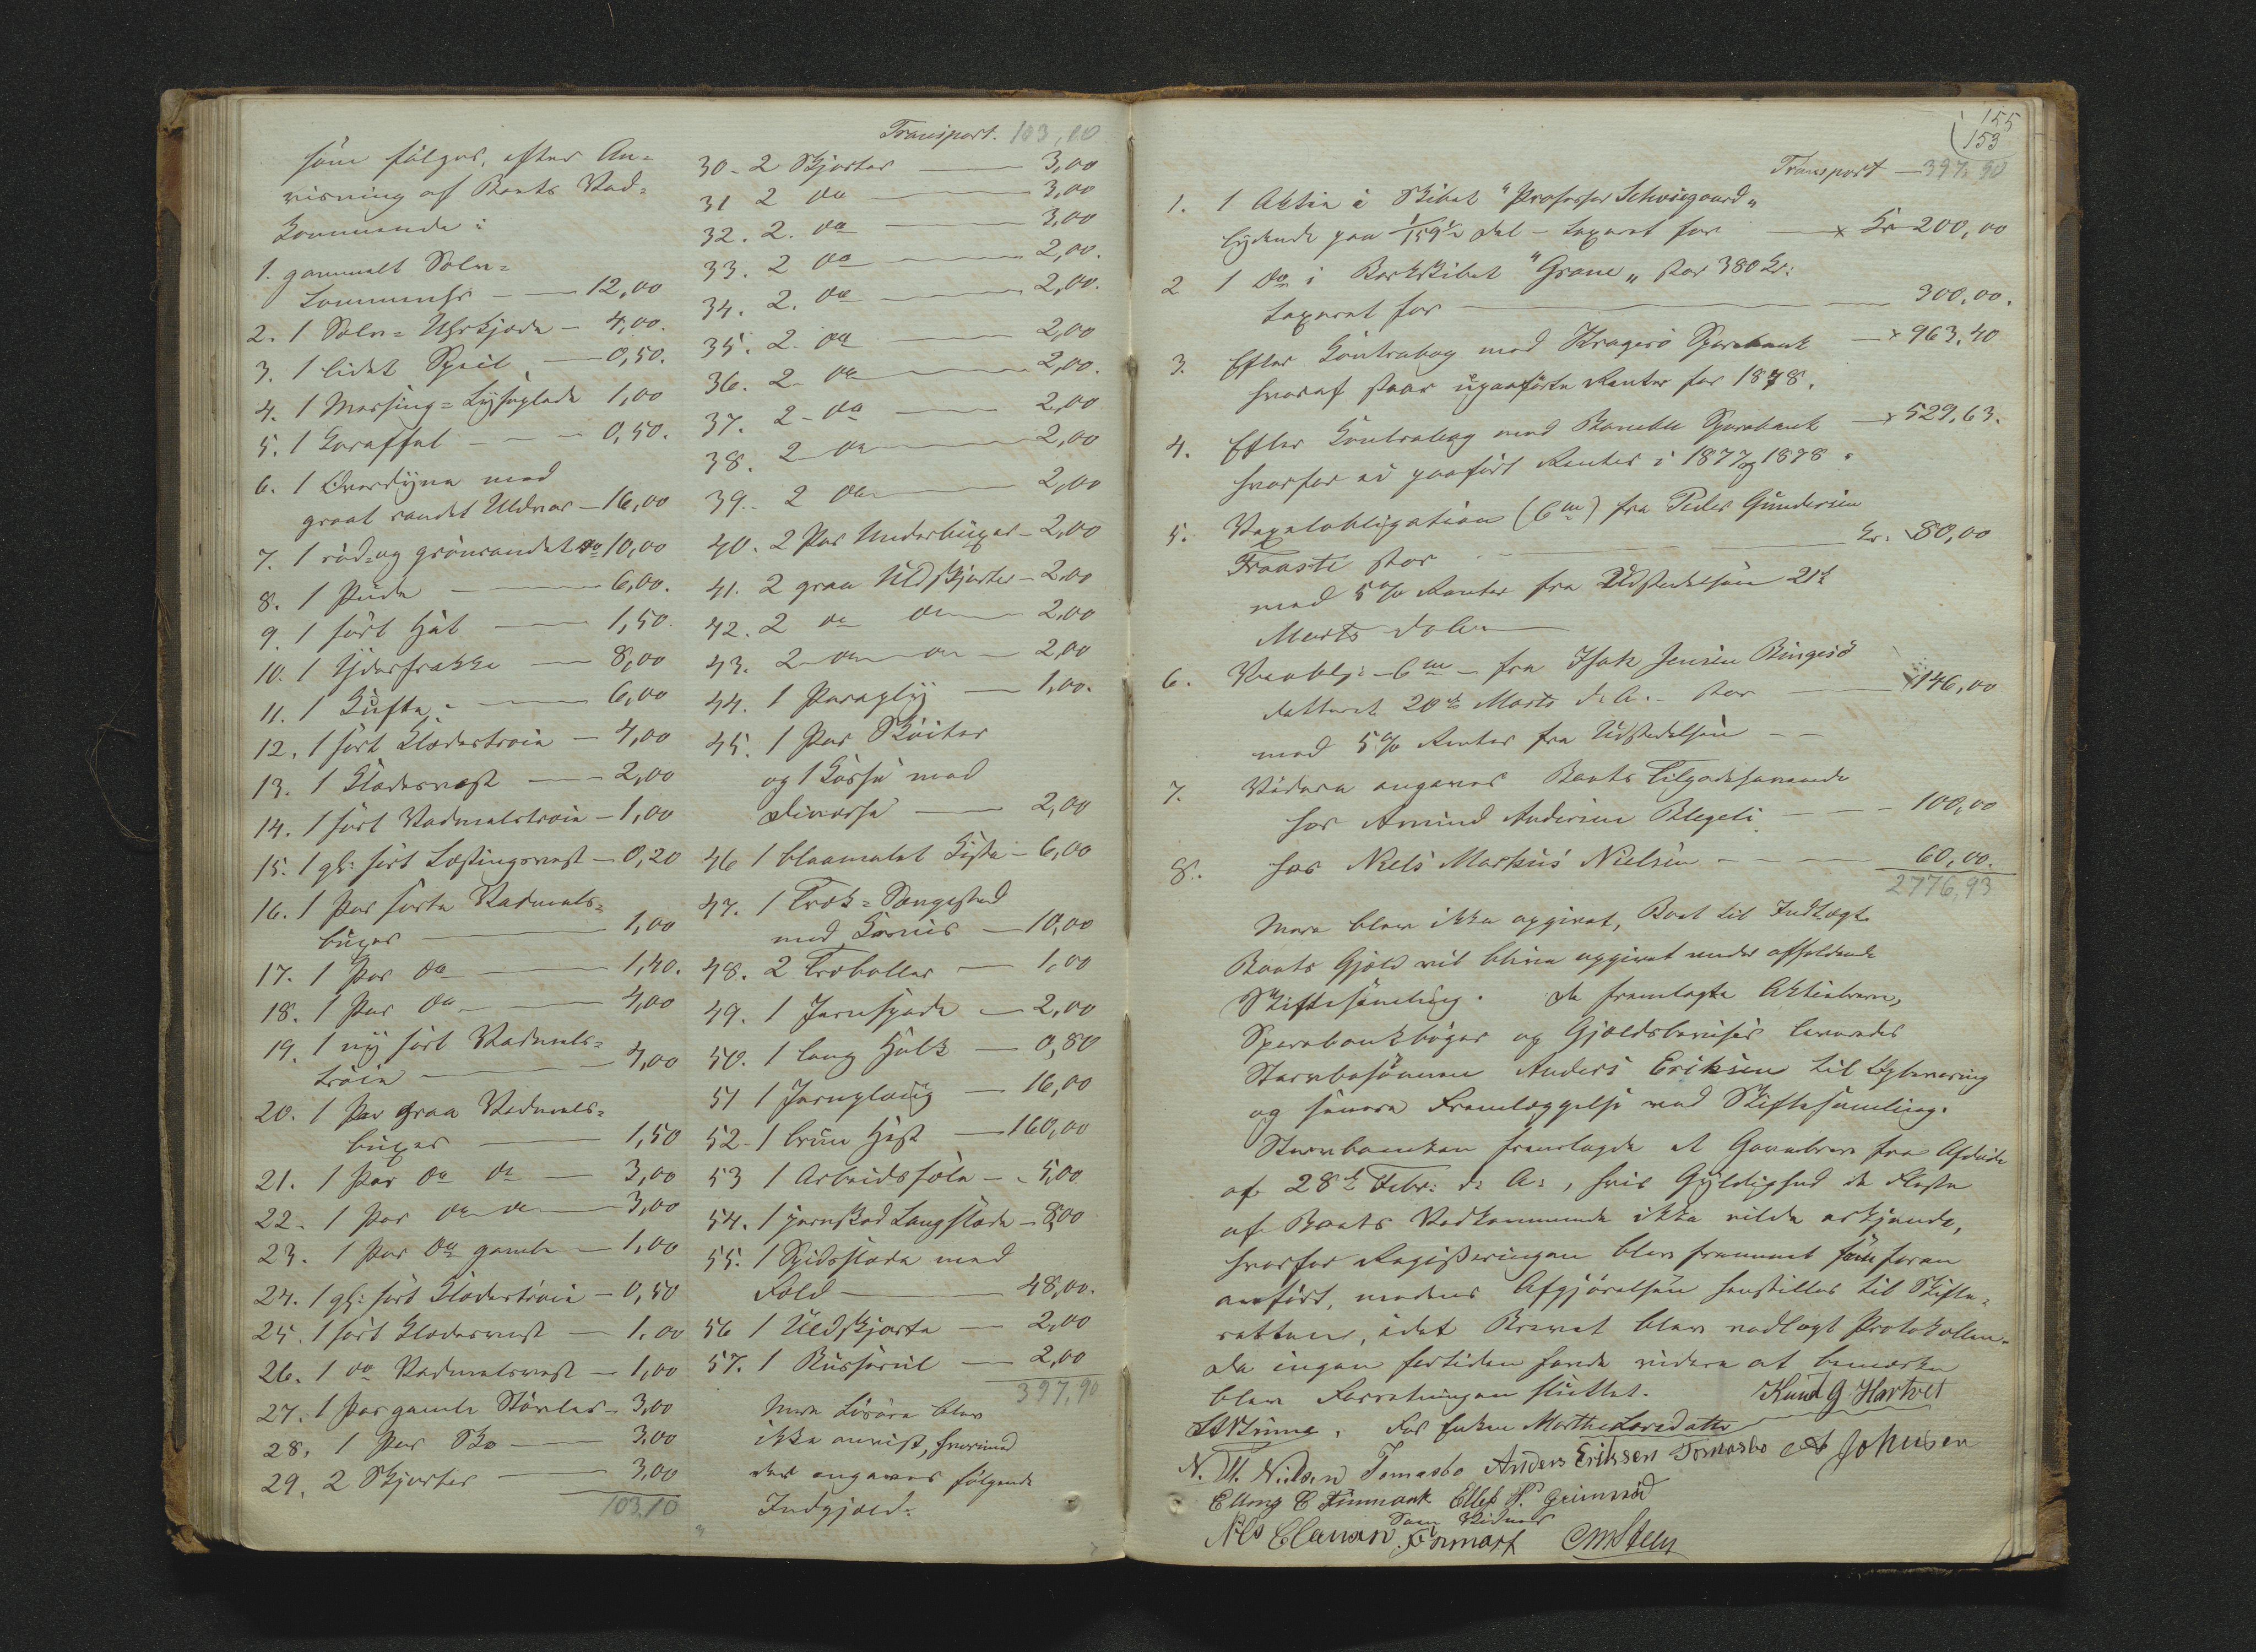 som følger, efter An-
visning af Boets Ved-
kommende:
1. gammelt Sølv-
Lommeuhr — 12,00
2. 1 Sølv-Uhrkjæde — 4,00.
3. 1 lidet Speil — 0,50.
4. 1 Messing-Lyseplade 1,00
5. 1 Karaffel — 0,50.
6. 1 Overdyne med
graat randet Uldvar — 16,00
7. 1 rød- og grønrandet do 10,00
8. 1 Pude — 6,00.
9. 1 sort Hat — 1,50
10. 1 Yderfrakke — 8,00
11. 1 Kufte — 6,00
12. 1 sort Klædestrøie — 4,00
13. 1 Klædesvest — 2,00
14. 1 sort Vadmelstrøie — 1,00
15. 1 gl: sort Lastingsvest — 0,20
16. 1 Par sorte Vadmels-
buxer — 1,00
17. 1 Par do — 1,40.
18. 1 Par do — 4,00
19. 1 ny sort Vadmels-
trøie — 4,00
20. 1 Par graa Vadmels-
buxer — 1,50
21. 1 Par do do — 3,00
22. 1 Par do do — 3,00
23. 1 Par do gamle — 1,00
24. 1 gl: sort Klædestrøie — 0,50
25. 1 sort Klædesvest — 1,00
26. 1 do Vadmelsvest — 1,00
27. 1 Par gamle Støvler — 3,00
28. 1 Par Sko — 3,00
29. 2 Skjorter — 3,00
103,10
Transport. 103,10
30. 2 Skjorter — 3,00
31 2 do — 3,00
32. 2. do — 3,00
33. 2 do — 2,00.
34. 2. do — 2,00.
35. 2 do — 2,00
36. 2 do — 2,00.
37. 2 do — 2,00
38. 2 do — 2,00
39. 2 do — 2,00
40. 2 Par Underbuxer — 2,00
41. 2 graa Uldskjorter — 2,00
42. 2 do do — 2,00
43. 2 do do — 2,00
44. 1 Paraply — 1,00.
45. 1 Par Skøiter
og 1 Kasse med
diverse — 2,00
46 1 blaamalet Kiste — 6,00
47. 1 Træk-Sengested
med Karnis — 10,00
48. 2 Træboller — 1,00
49. 1 Jernspade — 2,00
50. 1 lang Hulk — 0,80
51 1 Jernploug — 16,00
52. 1 brun Hest — 160,00
53 1 Arbeidssele — 5,00
54. 1 jernskoed Langslæde — 8,00
55. 1 Spidsslæde med
Fæld — 48,00.
56 1 Uldskjorte — 2,00
57. 1 — 2,00
397,90
Mere Løsøre blev
ikke anvist, hvorimod
der angaves følgende
Indgjæld:
155
153
Transport — 397,90
1. 1 Aktie i Skibet "Professor Schweigaard"
lydende paa 1/159de Del - taxeret for — x Kr 200,00
2 1 do i Barkskibet "Grane" stor 380 Kr:
taxeret for — 300,00.
3. Efter Kontrabog med Kragerø Sparebank — x 963,40
hvoraf staar upaaførte Renter for 1878.
4. Efter Kontrabog med Bamble Sparebank — x 529,63.
hvorfor ei paaført Renter i 1877 og 1878.
5. Vexelobligation (6 m) fra Peder Gundersen
Traaste stor — Kr: 80,00
med 5% Renter fra Udstedelsen 21de
Marts d. A.
6. Vexelobl: 6 m fra Isak Jensen Bingesø
datteret 20de Marts d. A. stor — 146,00
med 5% Renter fra Udstedelsen
7. Videre angaves Boets Tilgodehavende
hos Amund Andersen Blegeli — 100,00
8. hos Niels Markus Nielsen — 60,00.
2776,93
Mere blev ikke opgivet, Boet til Indtægt.
Boets Gjæld vil blive opgivet under afholdende
Skiftesamling. De fremlagte Aktiebreve,
Sparebankbøger og Gjældsbeviser leveredes
Stervbosønnen Anders Eriksen til Opbevaring
og senere Fremlæggelse ved Skiftesamling.
Stervboenken fremlagde et Gavebrev fra Afdøde
af 28de Febr: d: A:, hvis Gyldighed de fleste
af Boets Vedkommende ikke vilde erkjende,
hvorfor Registreringen blev fremmet som foran
anført, medens Afgjørelsen henstilles til Skifte-
retten, idet Brevet blev vedlagt Protokollen.
Da ingen fortiden havde videre at bemærke
blev Forretningen sluttet. Knud G. Hartvet
For Enken Marthe Larsdatter
N. M. Nilsen Tomasbo Anders Eriksen Tomasbo A Johnsen
Ellong E Finmark Ellef P. Grimsrød
Som Vidner
Nils Clausen Finmark CMSteen